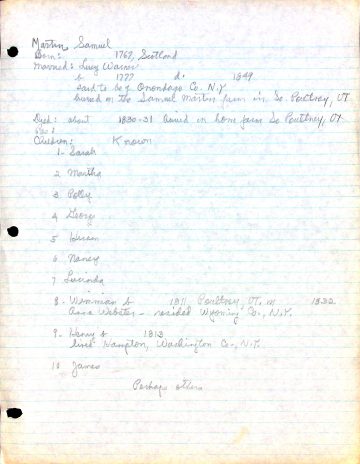 Martin, Samuel
Born: 1762, Scotland
Married: Lucy Warner
b 1777 d. 1849
said to be of Onondaga Co. N.Y.
buried on the Samuel Martin farm in So. Poultney, VT
Died: about 1830-31 buried in home farm So Poultney, VT
Children: Known
1. Sarah
2 Martha
3 Polley
4 George
5 Hiram
6 Nancy
7 Lucinda
8 - b 1811 Poultney, VT, m 1832
Anna Webster - resided Wyoming Co., N.Y.
9. Henry b 1813
lived Hampton, Washington Co., N.Y.
10 James
Perhaps others